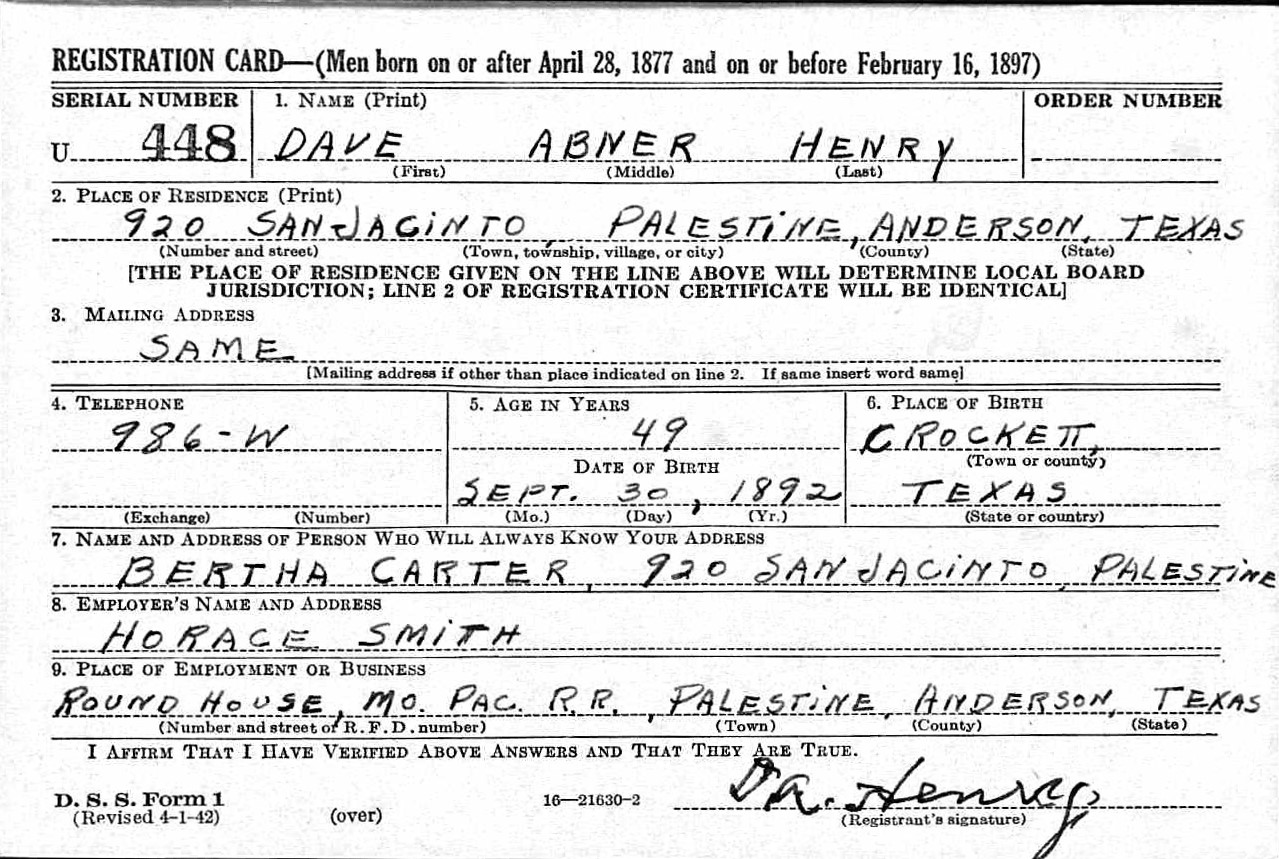 REGISTRATION CARD—(Men born on or after April 28, 1877 and on or before February 16, 1897)
SERIAL NUMBER 1. NAME (Print) ORDER NUMBER
U 448 DAVE ABNER HENRY
(First) (Middle) (Last)
2. PLACE OF RESIDENCE (Print)
920 SAN JACINTO, PALESTINE, ANDERSON, TEXAS
(Number and street) (Town, township, village, or city) (County) (State)
[THE PLACE OF RESIDENCE GIVEN ON THE LINE ABOVE WILL DETERMINE LOCAL BOARD
JURISDICTION; LINE 2 OF REGISTRATION CERTIFICATE WILL BE IDENTICAL]
3. MAILING ADDRESS
SAME
[Mailing address if other than place indicated on line 2. If same insert word same]
4. TELEPHONE 5. AGE IN YEARS 6. PLACE OF BIRTH
986-W 49 CROCKETT,
DATE OF BIRTH (Town or county)
SEPT. 30, 1892 TEXAS
(Exchange) (Number) (Mo.) (Day) (Yr.) (State or country)
7. NAME AND ADDRESS OF PERSON WHO WILL ALWAYS KNOW YOUR ADDRESS
BERTHA CARTER, 920 SAN JACINTO, PALESTINE
8. EMPLOYER'S NAME AND ADDRESS
HORACE SMITH
9. PLACE OF EMPLOYMENT OR BUSINESS
ROUND HOUSE, MO. PAC. R.R., PALESTINE, ANDERSON, TEXAS
(Number and street or R. F. D. number) (Town) (County) (State)
I AFFIRM THAT I HAVE VERIFIED ABOVE ANSWERS AND THAT THEY ARE TRUE.
D. A. Henry
D. S. S. Form 1 16—21630-2
(Revised 4-1-42) (over) (Registrant's signature)